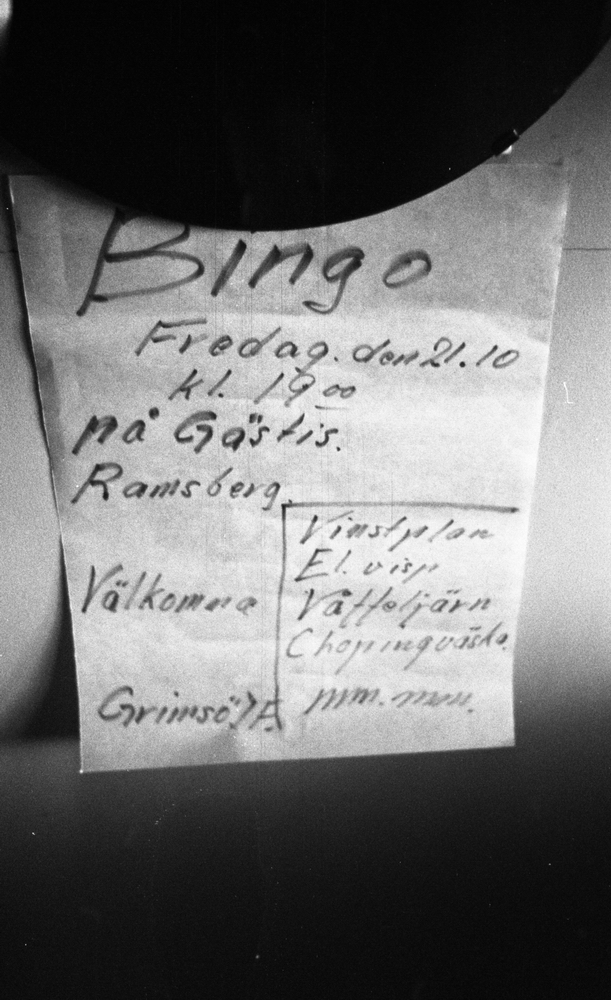 Bingo
Fredag. den 21.10
kl. 19 00
på Gästis.
Ramsberg.
Vinstplan
El. visp
Våffeljärn
Chopingväska.
mm. mm.
Välkomna
Grimsö